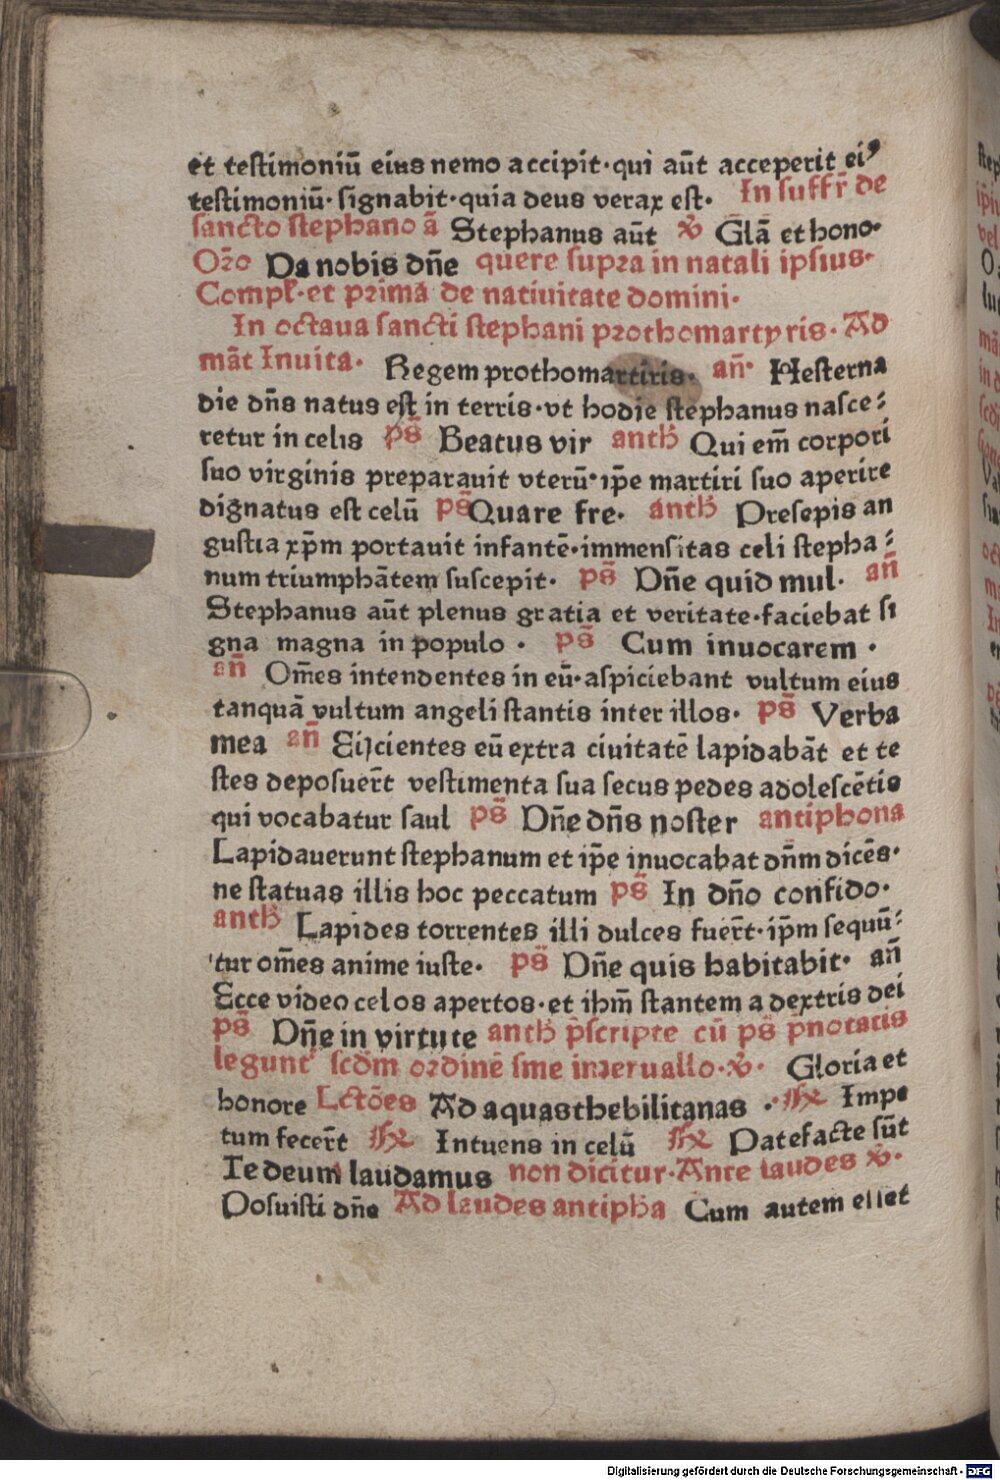 et testimoniū eius nemo accipit·qui aūt acceperit eiꝰ
testimoniū·signabit·quia deus verax est· In suffr̄ de
sancto stephano ā Stephanus aūt ℣ Glā et hono·
Or̄o Da nobis dn̄e quere supra in natali ipsius·
Compl̄·et prima de natiuitate domini·
In octaua sancti stephani prothomartyris· Ad
māt Inuita· Regem prothomartiris· an̄· Hesterna
die dn̄s natus est in terris·vt hodie stephanus nasce⸗
retur in celis ps̄ Beatus vir anth̄ Qui em̄ corpori
suo virginis preparauit vterū·ip̄e martiri suo aperire
dignatus est celū ps̄ Quare fre· anth̄ Presepis an
gustia xp̄m portauit infantē·immensitas celi stepha⸗
num triumphātem suscepit· ps̄ Dn̄e quid mul· an̄
Stephanus aūt plenus gratia et veritate·faciebat si
gna magna in populo · ps̄ Cum inuocarem ·
an̄ Om̄es intendentes in eū·aspiciebant vultum eius
tanquā vultum angeli stantis inter illos· ps̄ Verba
mea an̄ Eijcientes eū extra ciuitatē lapidabāt et te
stes deposuer̄t vestimenta sua secus pedes adolescētis
qui vocabatur saul ps̄ Dn̄e dn̄s noster antiphona
Lapidauerunt stephanum et ip̄e inuocabat dn̄m dicēs·
ne statuas illis hoc peccatum ps̄ In dn̄o confido·
anth̄ Lapides torrentes illi dulces fuer̄t·ip̄m sequū⸗
tur om̄es anime iuste· ps̄ Dn̄e quis habitabit· an̄
Ecce video celos apertos·et ihm̄ stantem a dextris dei
ps̄ Dn̄e in virtute anth̄ p̄scripte cū ps̄ p̄notatis
legunt᷑ scd̄m ordinē sine interuallo·℣· Gloria et
honore Lct̄ões Ad aquasthebilitanas · ℟ Impe
tum fecer̄t ℟ Intuens in celū ℟ Patefacte sūt
Te deum laudamus non dicitur·Ante laudes ℣·
Posuisti dn̄e Ad laudes antiph̄a Cum autem esset
Digitalisierung gefördert durch die Deutsche Forschungsgemeinschaft - DFG